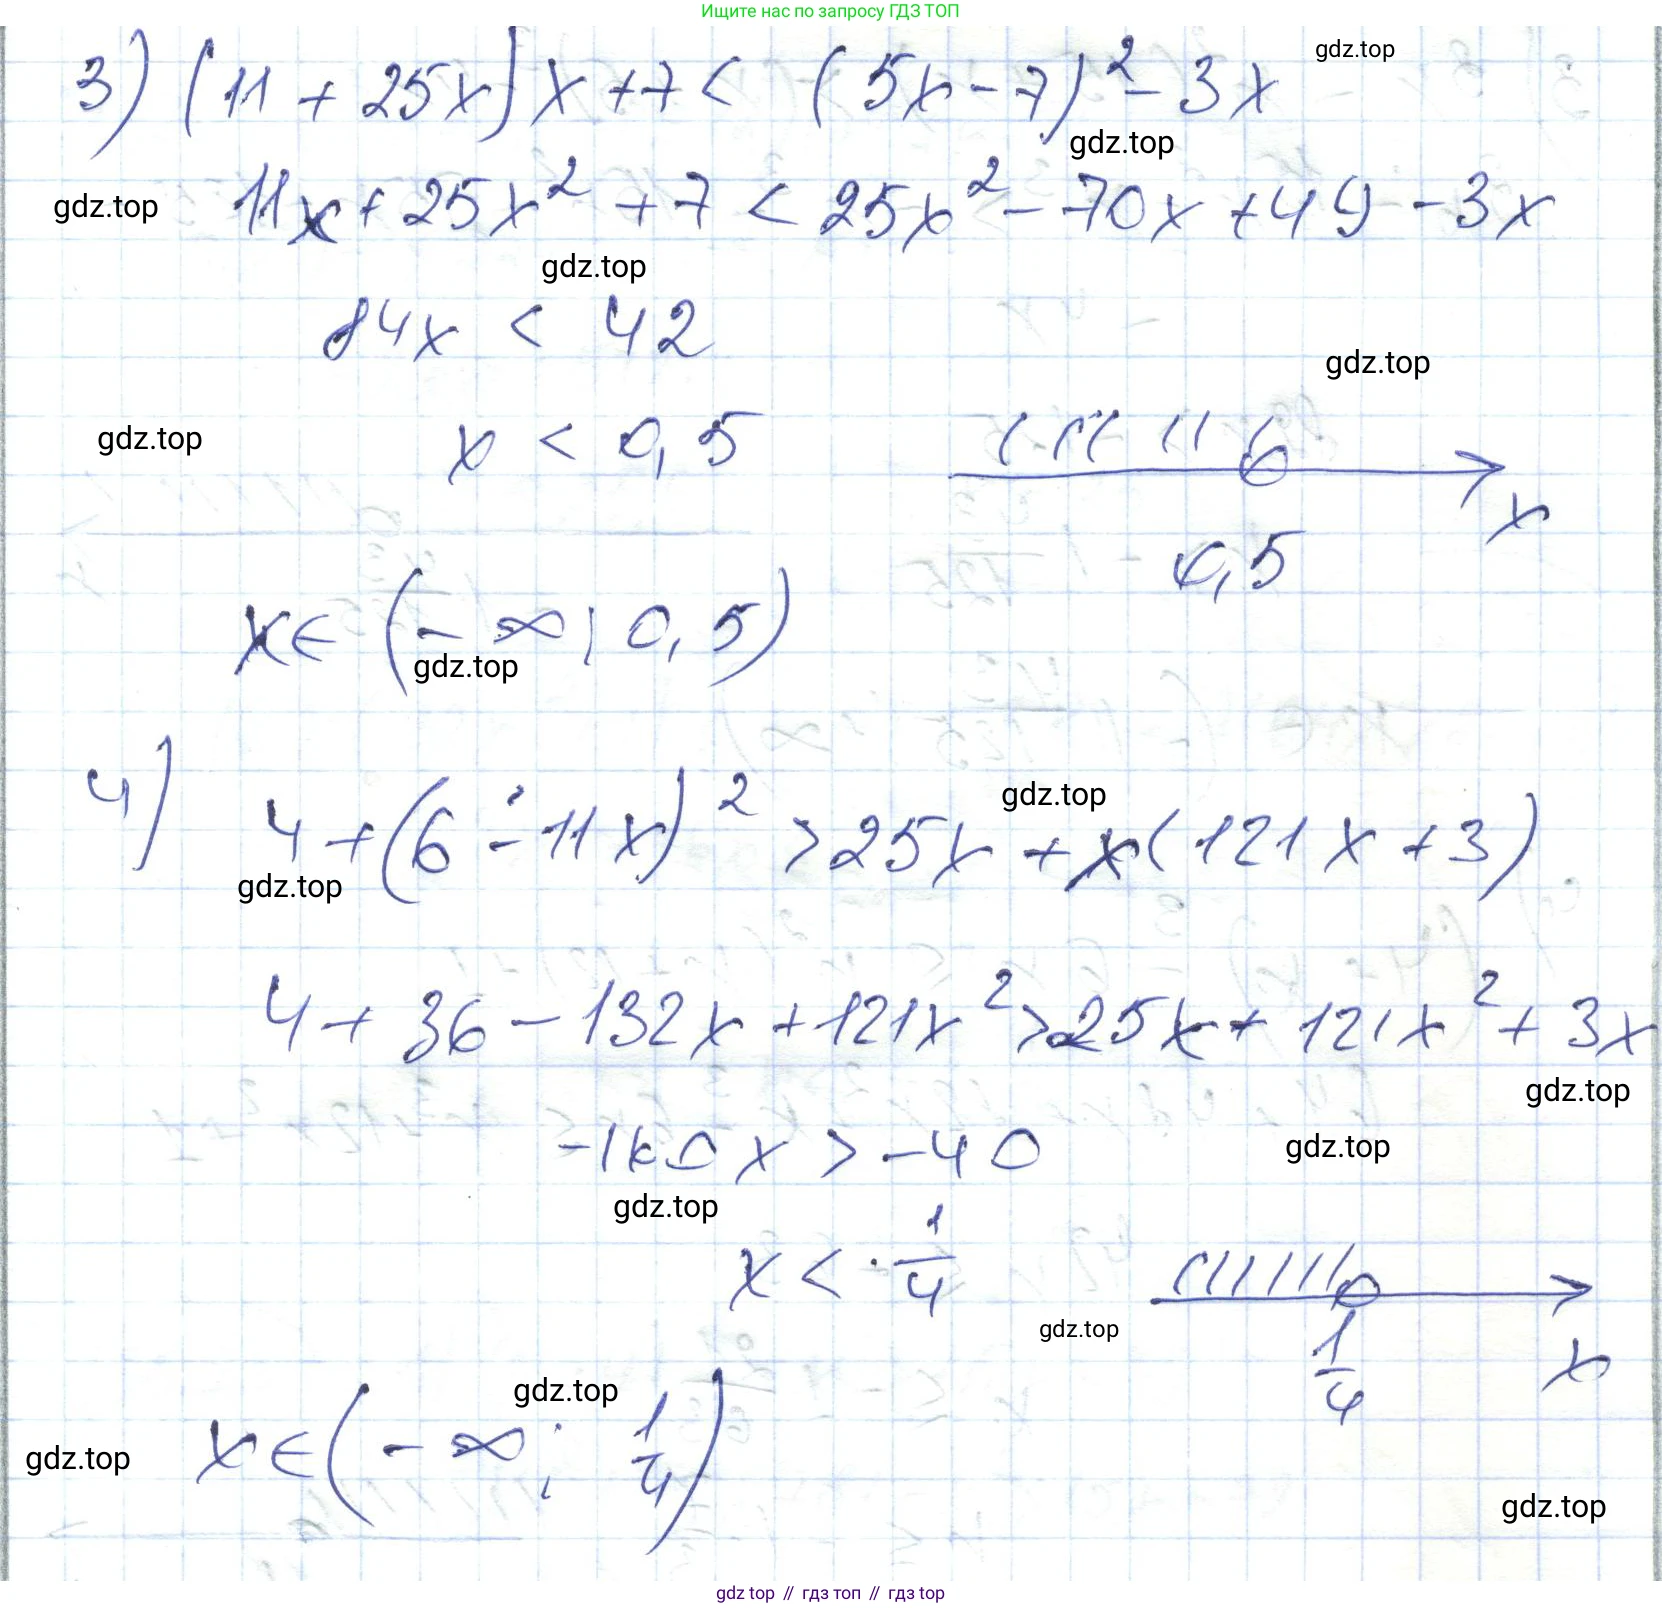 Ищите нас по запросу ГДЗ ТОП
gdz.top
3) (11 + 25x) x + 7 < (5x - 7)² - 3x
gdz.top
gdz.top
11x + 25x² + 7 < 25x² - 70x + 49 - 3x
gdz.top
84x < 42
gdz.top
gdz.top
x < 0,5
x
0,5
x ∈ (- ∞; 0,5)
gdz.top
gdz.top
4) 4 + (6 - 11x)² > 25x + x(121x + 3)
gdz.top
4 + 36 - 132x + 121x² > 25x + 121x² + 3x
gdz.top
-160x > -40
gdz.top
gdz.top
x < 1/4
gdz.top
1/4
x
gdz.top
x ∈ (- ∞; 1/4)
gdz.top
gdz.top
gdz top // гдз топ // гдз top